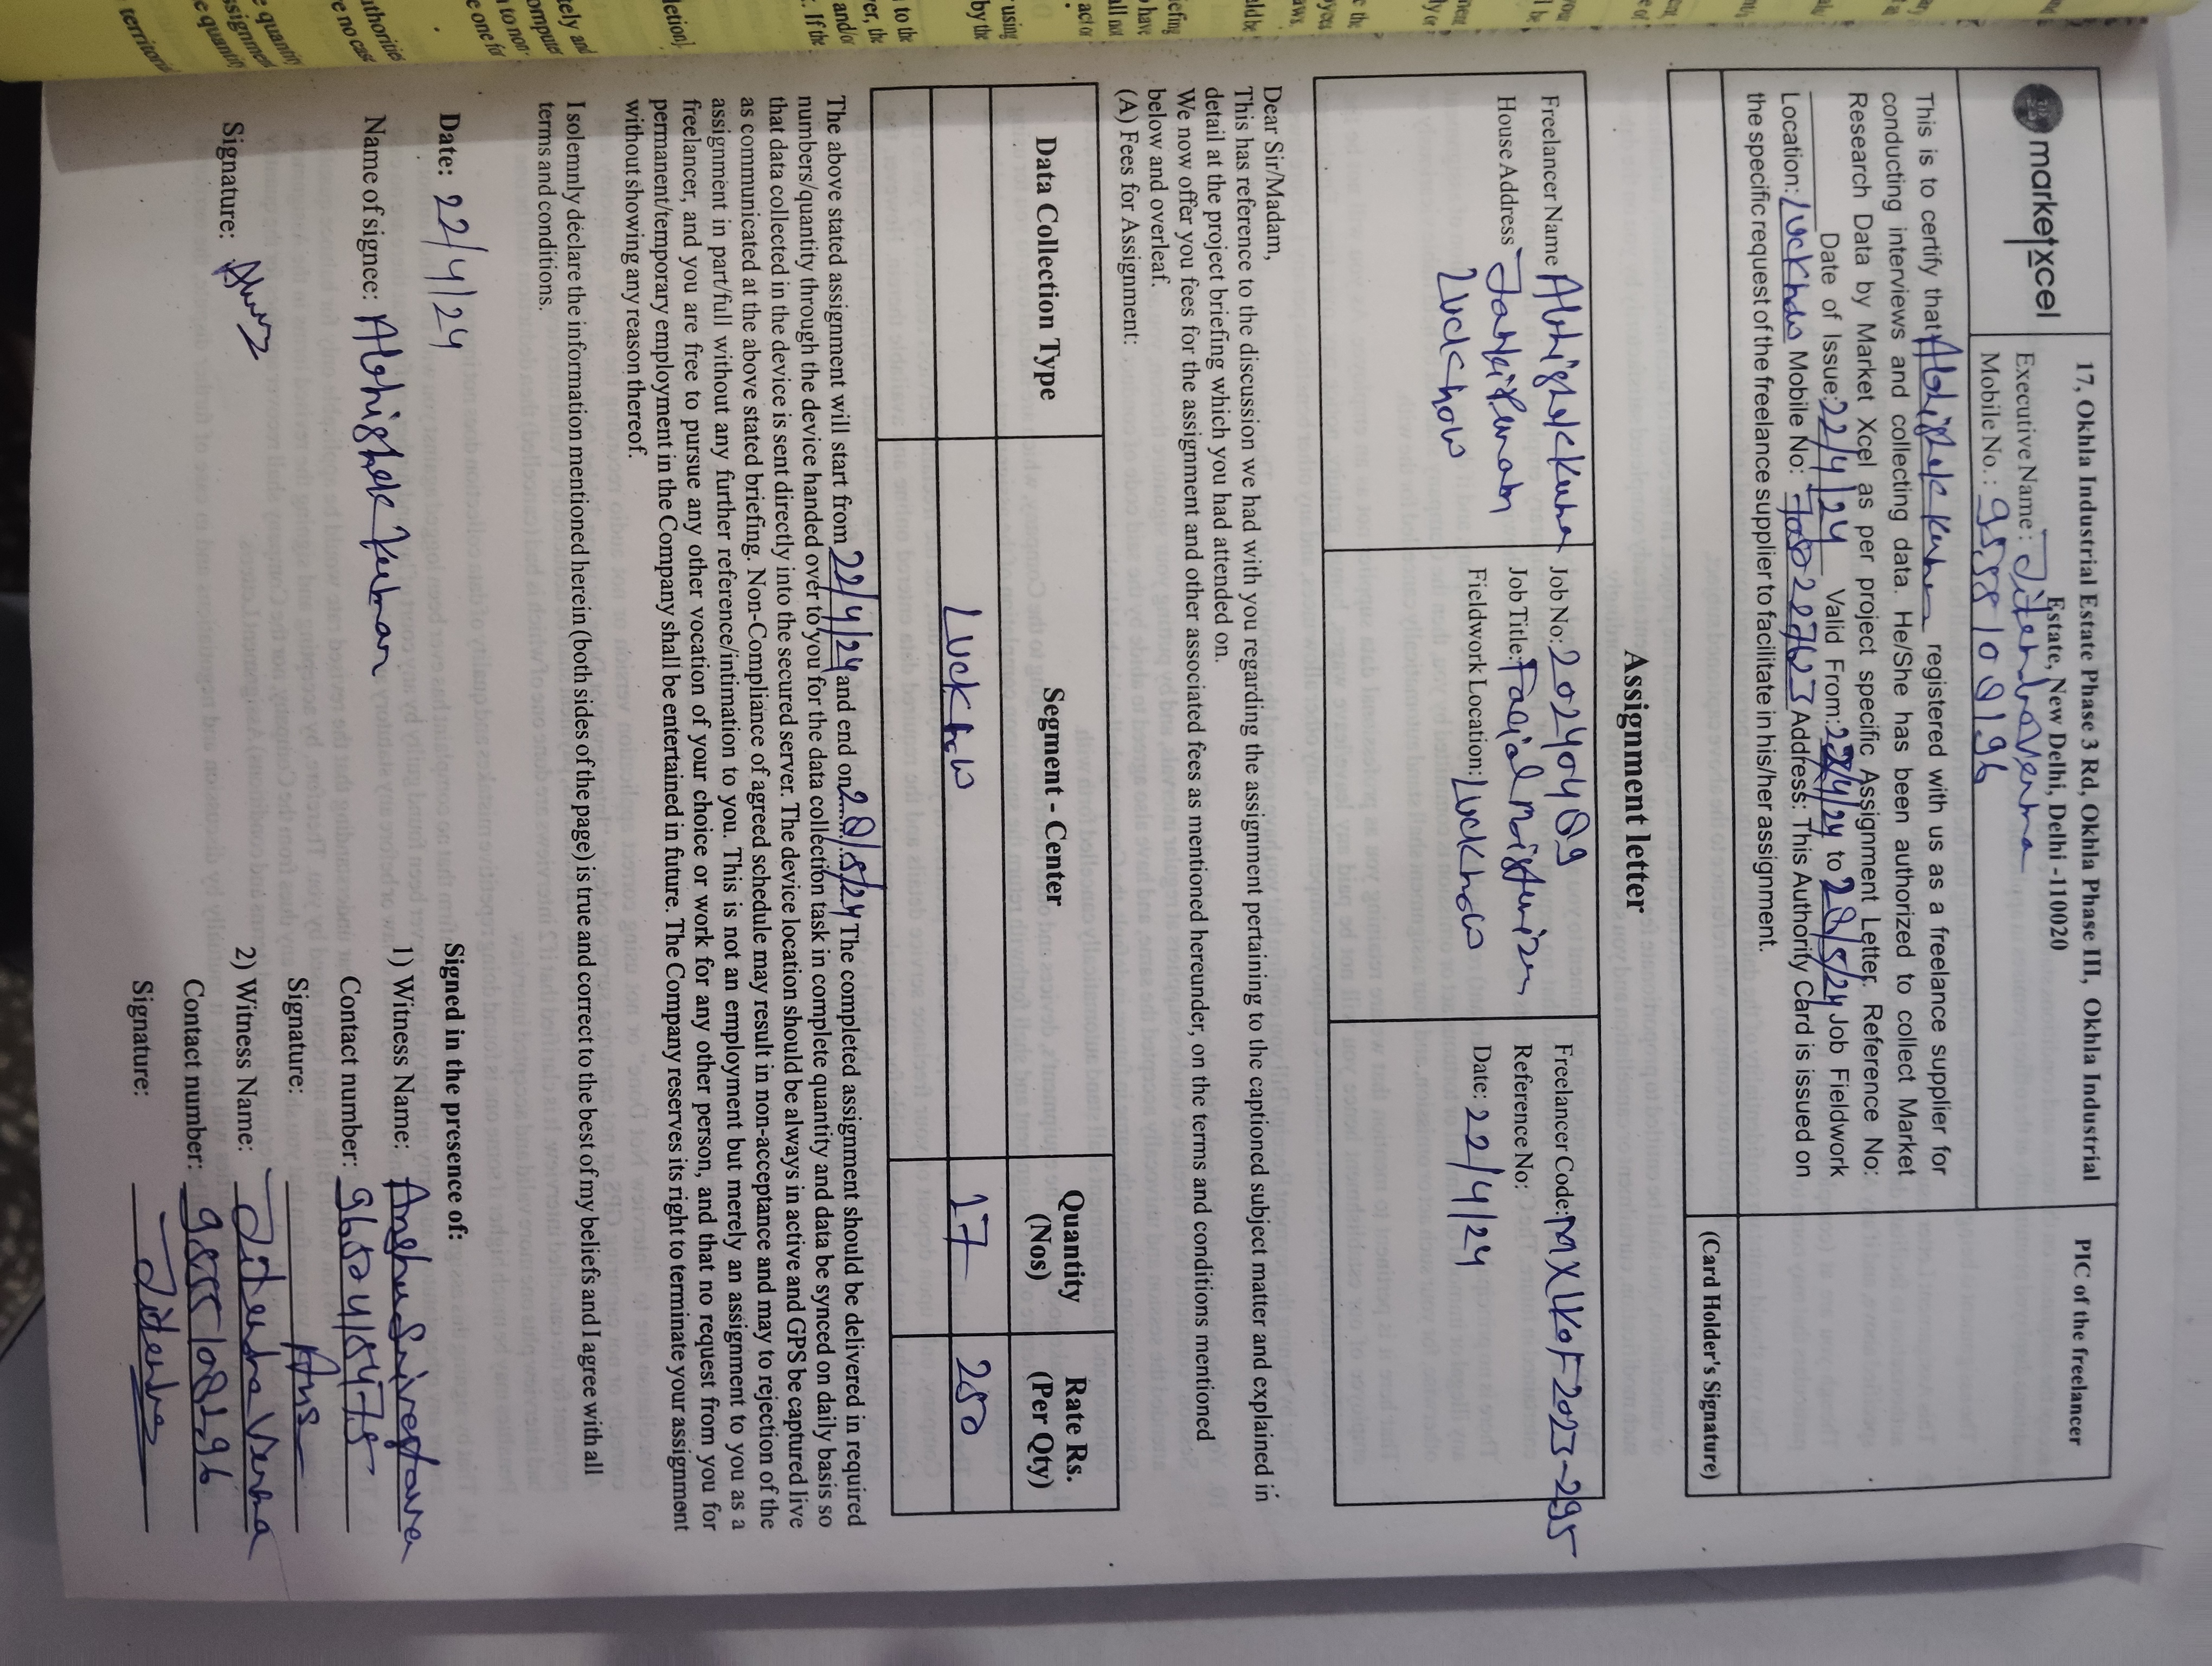 marketxcel
17, Okhla Industrial Estate Phase 3 Rd, Okhla Phase III, Okhla Industrial
Estate, New Delhi, Delhi -110020
Executive Name : Jitendra Verma
Mobile No. :
PIC of the freelancer
This is to certify that Abhishek Kumar registered with us as a freelance supplier for
conducting interviews and collecting data. He/She has been authorized to collect Market
Research Data by Market Xcel as per project specific Assignment Letter. Reference No:
Date of Issue: 22/4/24 Valid From: 22/4/24 to 28/5/24 Job Fieldwork
Location: Lucknow Mobile No: Address: This Authority Card is issued on
the specific request of the freelance supplier to facilitate in his/her assignment.
(Card Holder's Signature)
Assignment letter
Freelancer Name Abhishek Kumar
House Address Jankipuram
Lucknow
Job No: 202404089
Job Title: Facial Moisturizer
Fieldwork Location: Lucknow
Freelancer Code: MXLKOF2023-295
Reference No:
Date: 22/4/24
Dear Sir/Madam,
This has reference to the discussion we had with you regarding the assignment pertaining to the captioned subject matter and explained in
detail at the project briefing which you had attended on.
We now offer you fees for the assignment and other associated fees as mentioned hereunder, on the terms and conditions mentioned
below and overleaf.
(A) Fees for Assignment:
Data Collection Type
Segment - Center
Quantity
(Nos)
Rate Rs.
(Per Qty)
Lucknow 17 250
The above stated assignment will start from 22/4/24 and end on 28/5/24 The completed assignment should be delivered in required
numbers/quantity through the device handed over to you for the data collection task in complete quantity and data be synced on daily basis so
that data collected in the device is sent directly into the secured server. The device location should be always in active and GPS be captured live
as communicated at the above stated briefing. Non-Compliance of agreed schedule may result in non-acceptance and may to rejection of the
assignment in part/full without any further reference/intimation to you. This is not an employment but merely an assignment to you as a
freelancer, and you are free to pursue any other vocation of your choice or work for any other person, and that no request from you for
permanent/temporary employment in the Company shall be entertained in future. The Company reserves its right to terminate your assignment
without showing any reason thereof.
I solemnly declare the information mentioned herein (both sides of the page) is true and correct to the best of my beliefs and I agree with all
terms and conditions.
Date: 22/4/24
Name of signee: Abhishek Kumar
Signature:
Signed in the presence of:
1) Witness Name: Anshu Srivastava
Contact number:
Signature: Ans
2) Witness Name: Jitendra Verma
Contact number:
Signature: Jitendra